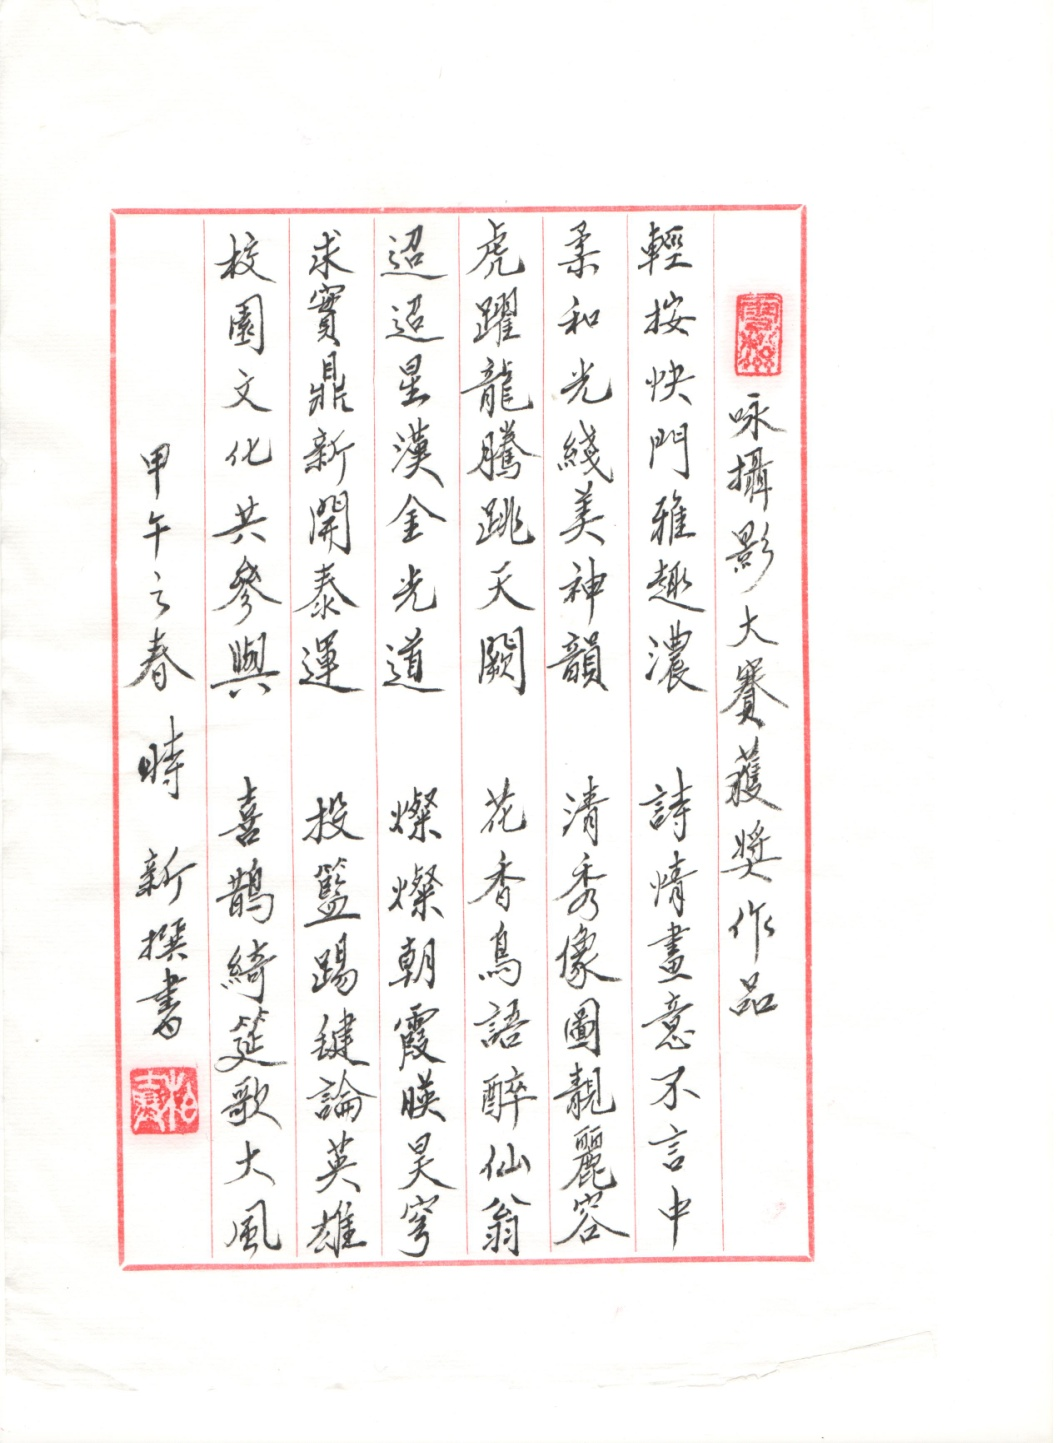 咏攝影大賽獲獎作品
輕按快門雅趣濃 詩情畫意不言中
柔和光綫美神韻 清秀像圖靚麗容
虎躍龍騰跳天闕 花香鳥語醉仙翁
迢迢星漢金光道 燦燦朝霞暎昊穹
求實鼎新開泰運 投籃踢毽論英雄
校園文化共參與 喜鵲綺筵歌大風
甲午之春 時新撰書